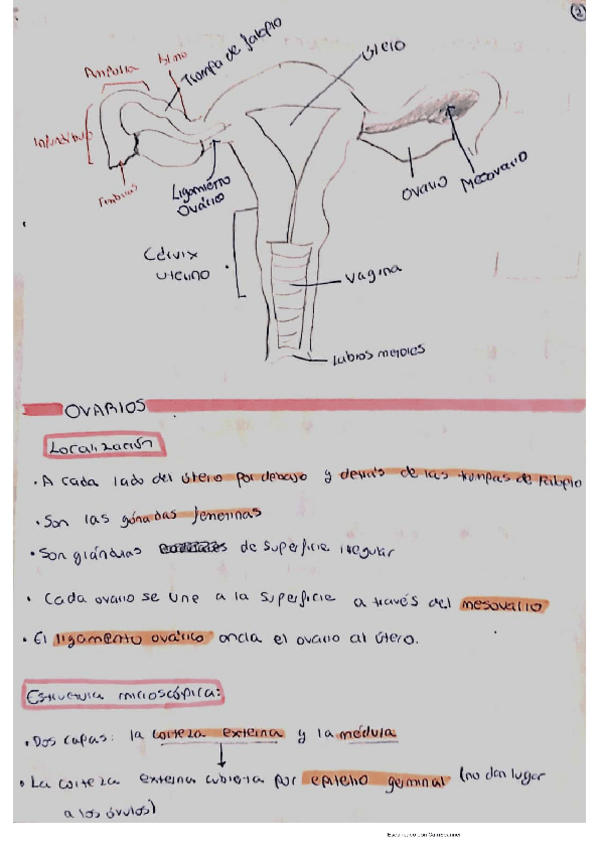 2
Ampolla
Istmo
Trompa de falopio
Útero
Infundíbulo
Fimbrias
Ligamento
Ovárico
Ovario
Mesovario
Cérvix
uterino
Vagina
Labios menores
OVARIOS
Localización
· A cada lado del útero por debajo y detrás de las trompas de Falopio
· Son las gónadas femeninas
· Son glándulas de superficie irregular
· Cada ovario se une a la superficie a través del mesovario
· El ligamento ovárico ancla el ovario al útero.
Estructura microscópica:
· Dos capas: la corteza externa y la médula
· La corteza externa cubierta por epitelio germinal (no dan lugar
a los óvulos)
Escaneado con CamScanner